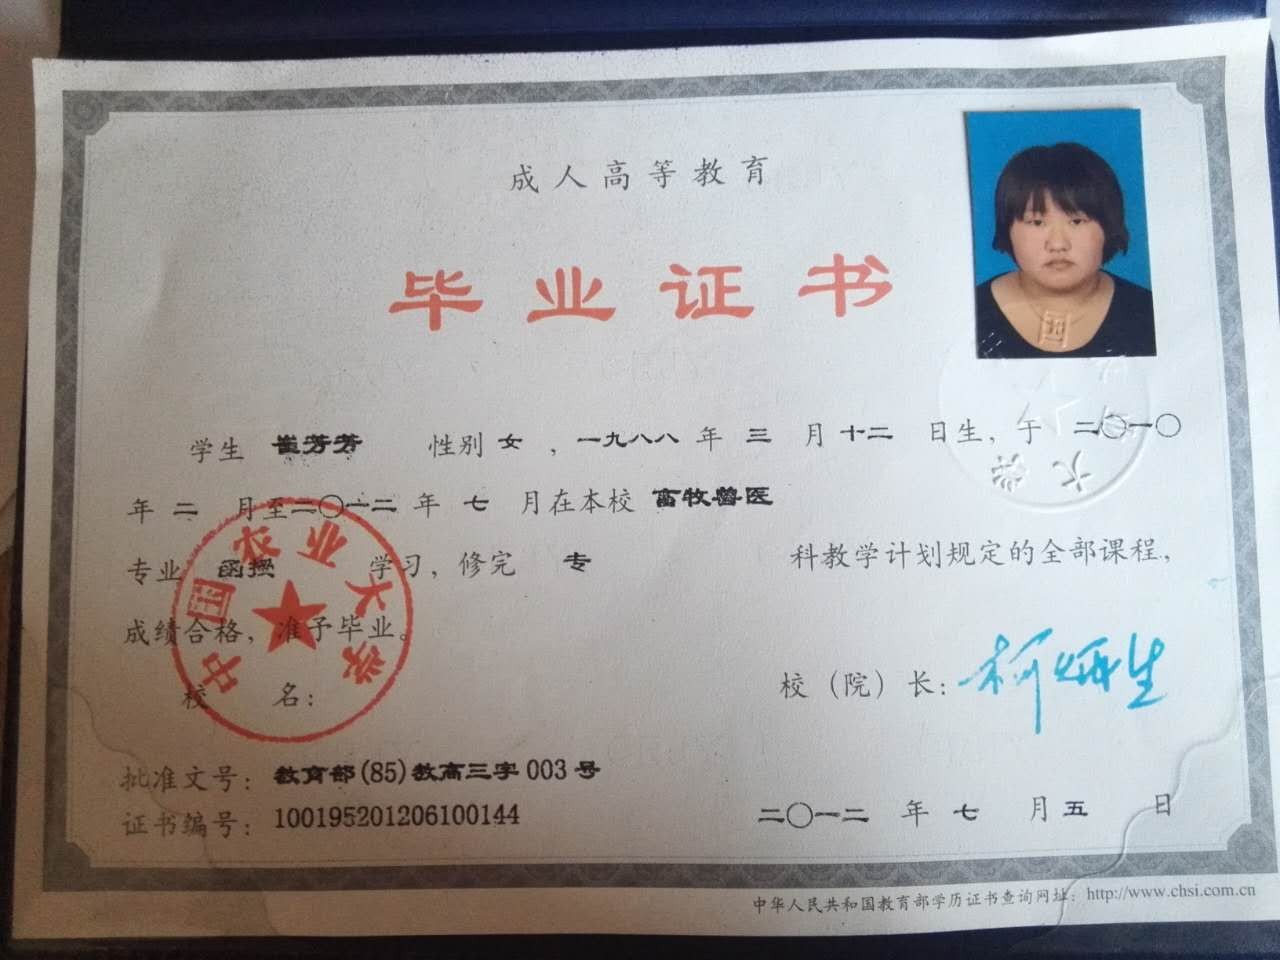 成人高等教育
毕业证书
学生 崔芳芳 性别 女 ，一九八八 年 三 月 十二 日生，于 二〇一〇
年 二 月至二〇一二 年 七 月在本校 畜牧兽医
专业 函授 学习，修完 专 科教学计划规定的全部课程，
成绩合格，准予毕业。
校 名：
校（院）长：柯炳生
中国农业大学
大学
国
批准文号：教育部(85)教高三字 003 号
证书编号：100195201206100144
二〇一二 年 七 月 五 日
中华人民共和国教育部学历证书查询网址：http://www.chsi.com.cn